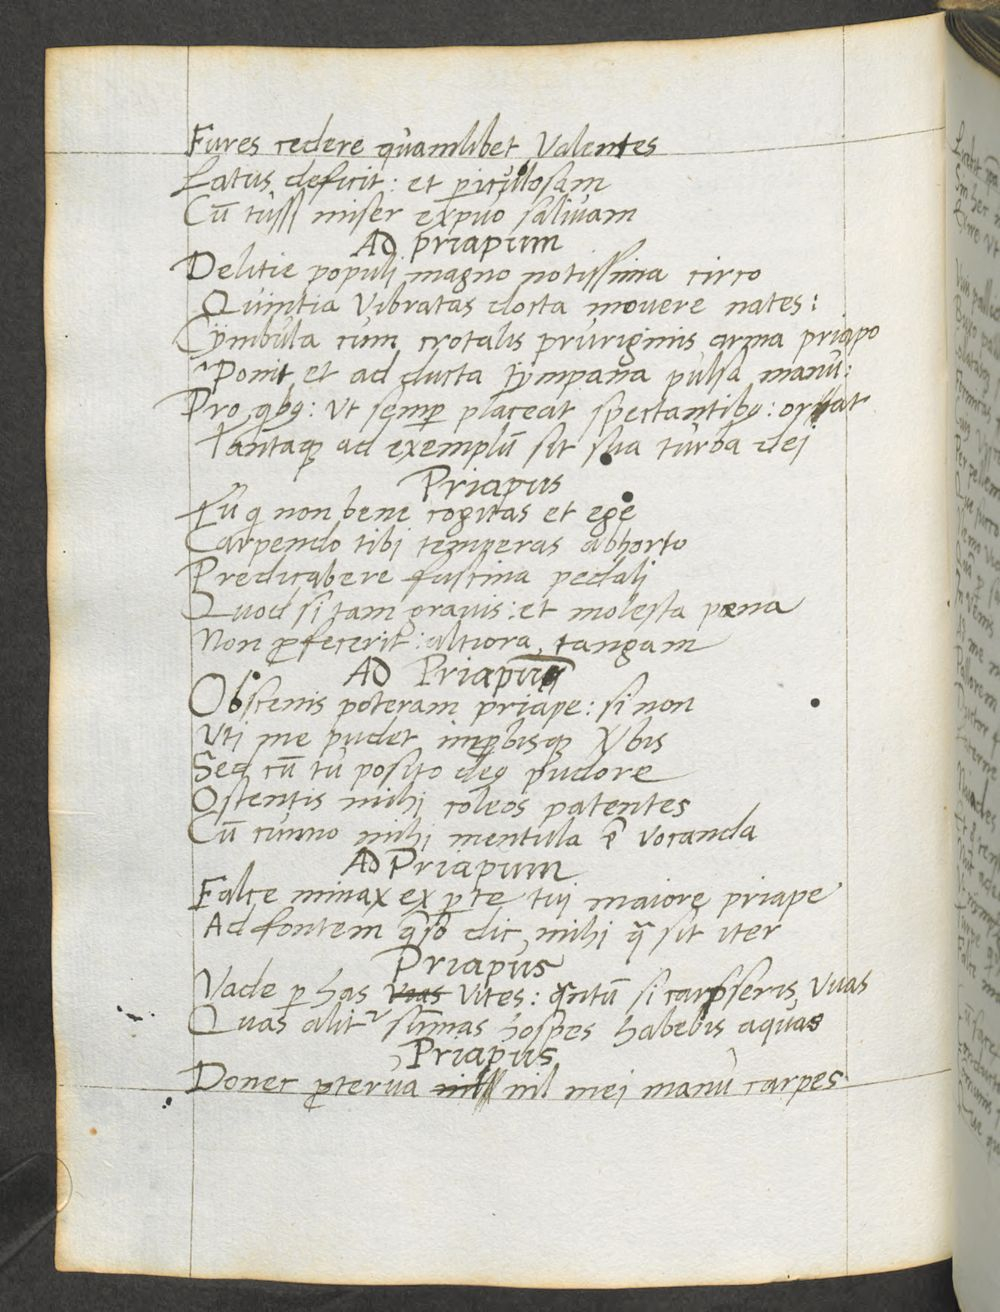 Fures cedere quamlibet Valentes
Latus deficit: et piculosam
Cū tussi miser expuo salivam
AD priapum
Delitie populi magno notissima circo
Quintia Vibratas docta movere nates:
Cymbula cum crotalis pruriginis arma priapo
Ponit et ad ducta tympana pulsa manu:
Pro qbꝫ: Ut semp placeat spectantibꝫ: orat
Tantaqꝫ ad exemplū sit sua turba dei
Priapus
Tu q non bene cogitas et ege
Carpendo tibi temperas ab horto
Predicabere fuscina pedali
Quod si tam gravis: et molesta pœna
Non ꝓfecerit: altiora tangam
AD Priapum
Obscenis poteram priape: si non
Uti me pudet impbisqꝫ Vbis
Sed cū tu posito deꝰ pudore
Ostentis mihi coleos patentes
Cū cunno mihi mentula ē vocanda
AD Priapum
Falce minax ex pte tui maiore priape
Ad fontem qso dic mihi q sit iter
Priapus
Vade p has Vites: qntū si carpseris Vvas
Quas alit summas hospes habebis aquas
Priapus
Donec pterva nil mei manu carpes